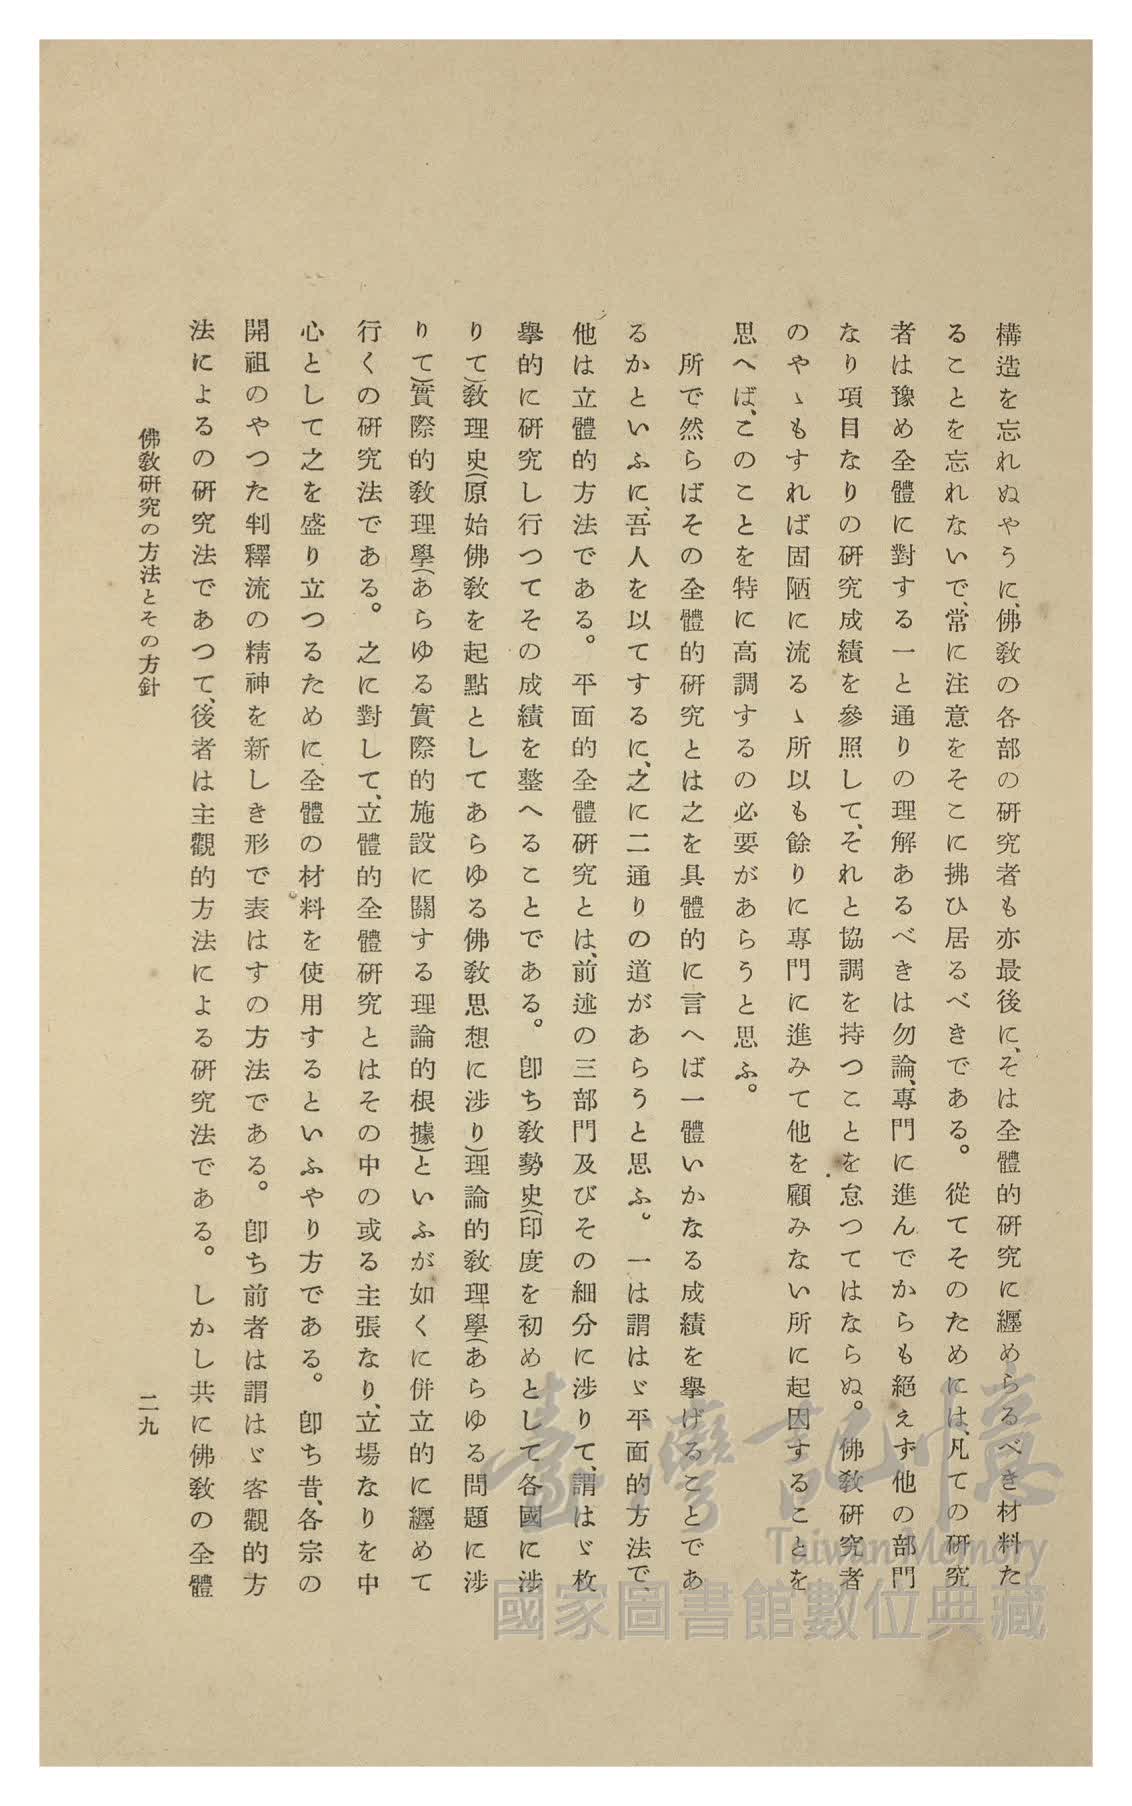 構造を忘れぬやうに、佛敎の各部の硏究者も亦最後に、そは全體的硏究に纒めらるべき材料た
ることを忘れないで、常に注意をそこに拂ひ居るべきである。從てそのためには、凡ての硏究
者は豫め全體に對する一と通りの理解あるべきは勿論、專門に進んでからも絕えず他の部門
なり項目なりの硏究成績を參照して、それと協調を持つことを怠つてはならぬ。佛敎硏究者
のやゝもすれば固陋に流るゝ所以も餘りに專門に進みて他を顧みない所に起因することを
思へば、このことを特に高調するの必要があらうと思ふ。
所で然らばその全體的硏究とは之を具體的に言へば一體いかなる成績を擧げることであ
るかといふに、吾人を以てするに、之に二通りの道があらうと思ふ。一は謂はゞ平面的方法で、
他は立體的方法である。平面的全體硏究とは、前述の三部門及びその細分に涉りて、謂はゞ枚
擧的に硏究し行つてその成績を整へることである。卽ち敎勢史(印度を初めとして各國に涉
りて)敎理史(原始佛敎を起點としてあらゆる佛敎思想に涉り)理論的敎理學(あらゆる問題に涉
りて)實際的敎理學(あらゆる實際的施設に關する理論的根據)といふが如くに併立的に纒めて
行くの硏究法である。之に對して、立體的全體硏究とはその中の或る主張なり、立場なりを中
心として之を盛り立つるために全體の材料を使用するといふやり方である。卽ち昔、各宗の
開祖のやつた判釋流の精神を新しき形で表はすの方法である。卽ち前者は謂はゞ客觀的方
法によるの硏究法であつて、後者は主觀的方法による硏究法である。しかし共に佛敎の全體
佛敎硏究の方法とその方針
二九
臺灣記憶
Taiwan Memory
國家圖書館數位典藏